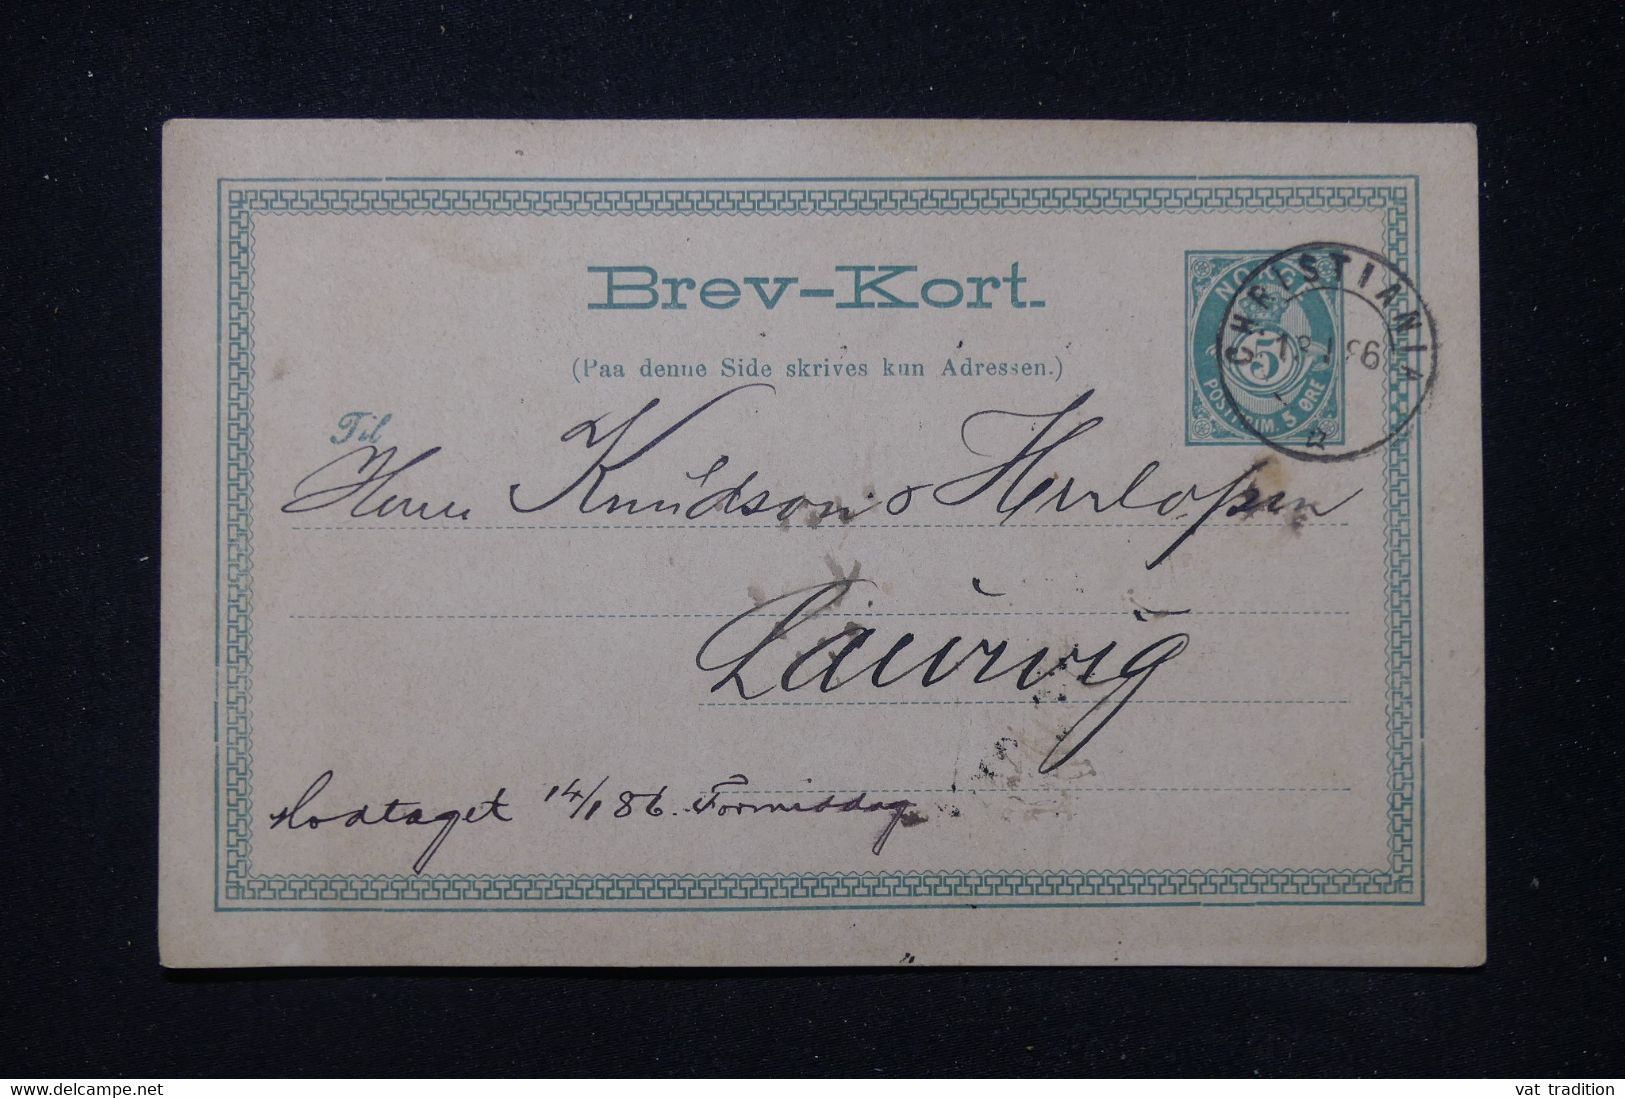 Brev-Kort.
(Paa denne Side skrives kun Adressen.)
NORGE
5
POSTFRIM. 5 ØRE
CHRISTIANIA
13 I 86
Til
Herrer Knudson &
Laurvig
Modtaget 14/1 86. Formiddag
vat tradition
delcampe.net